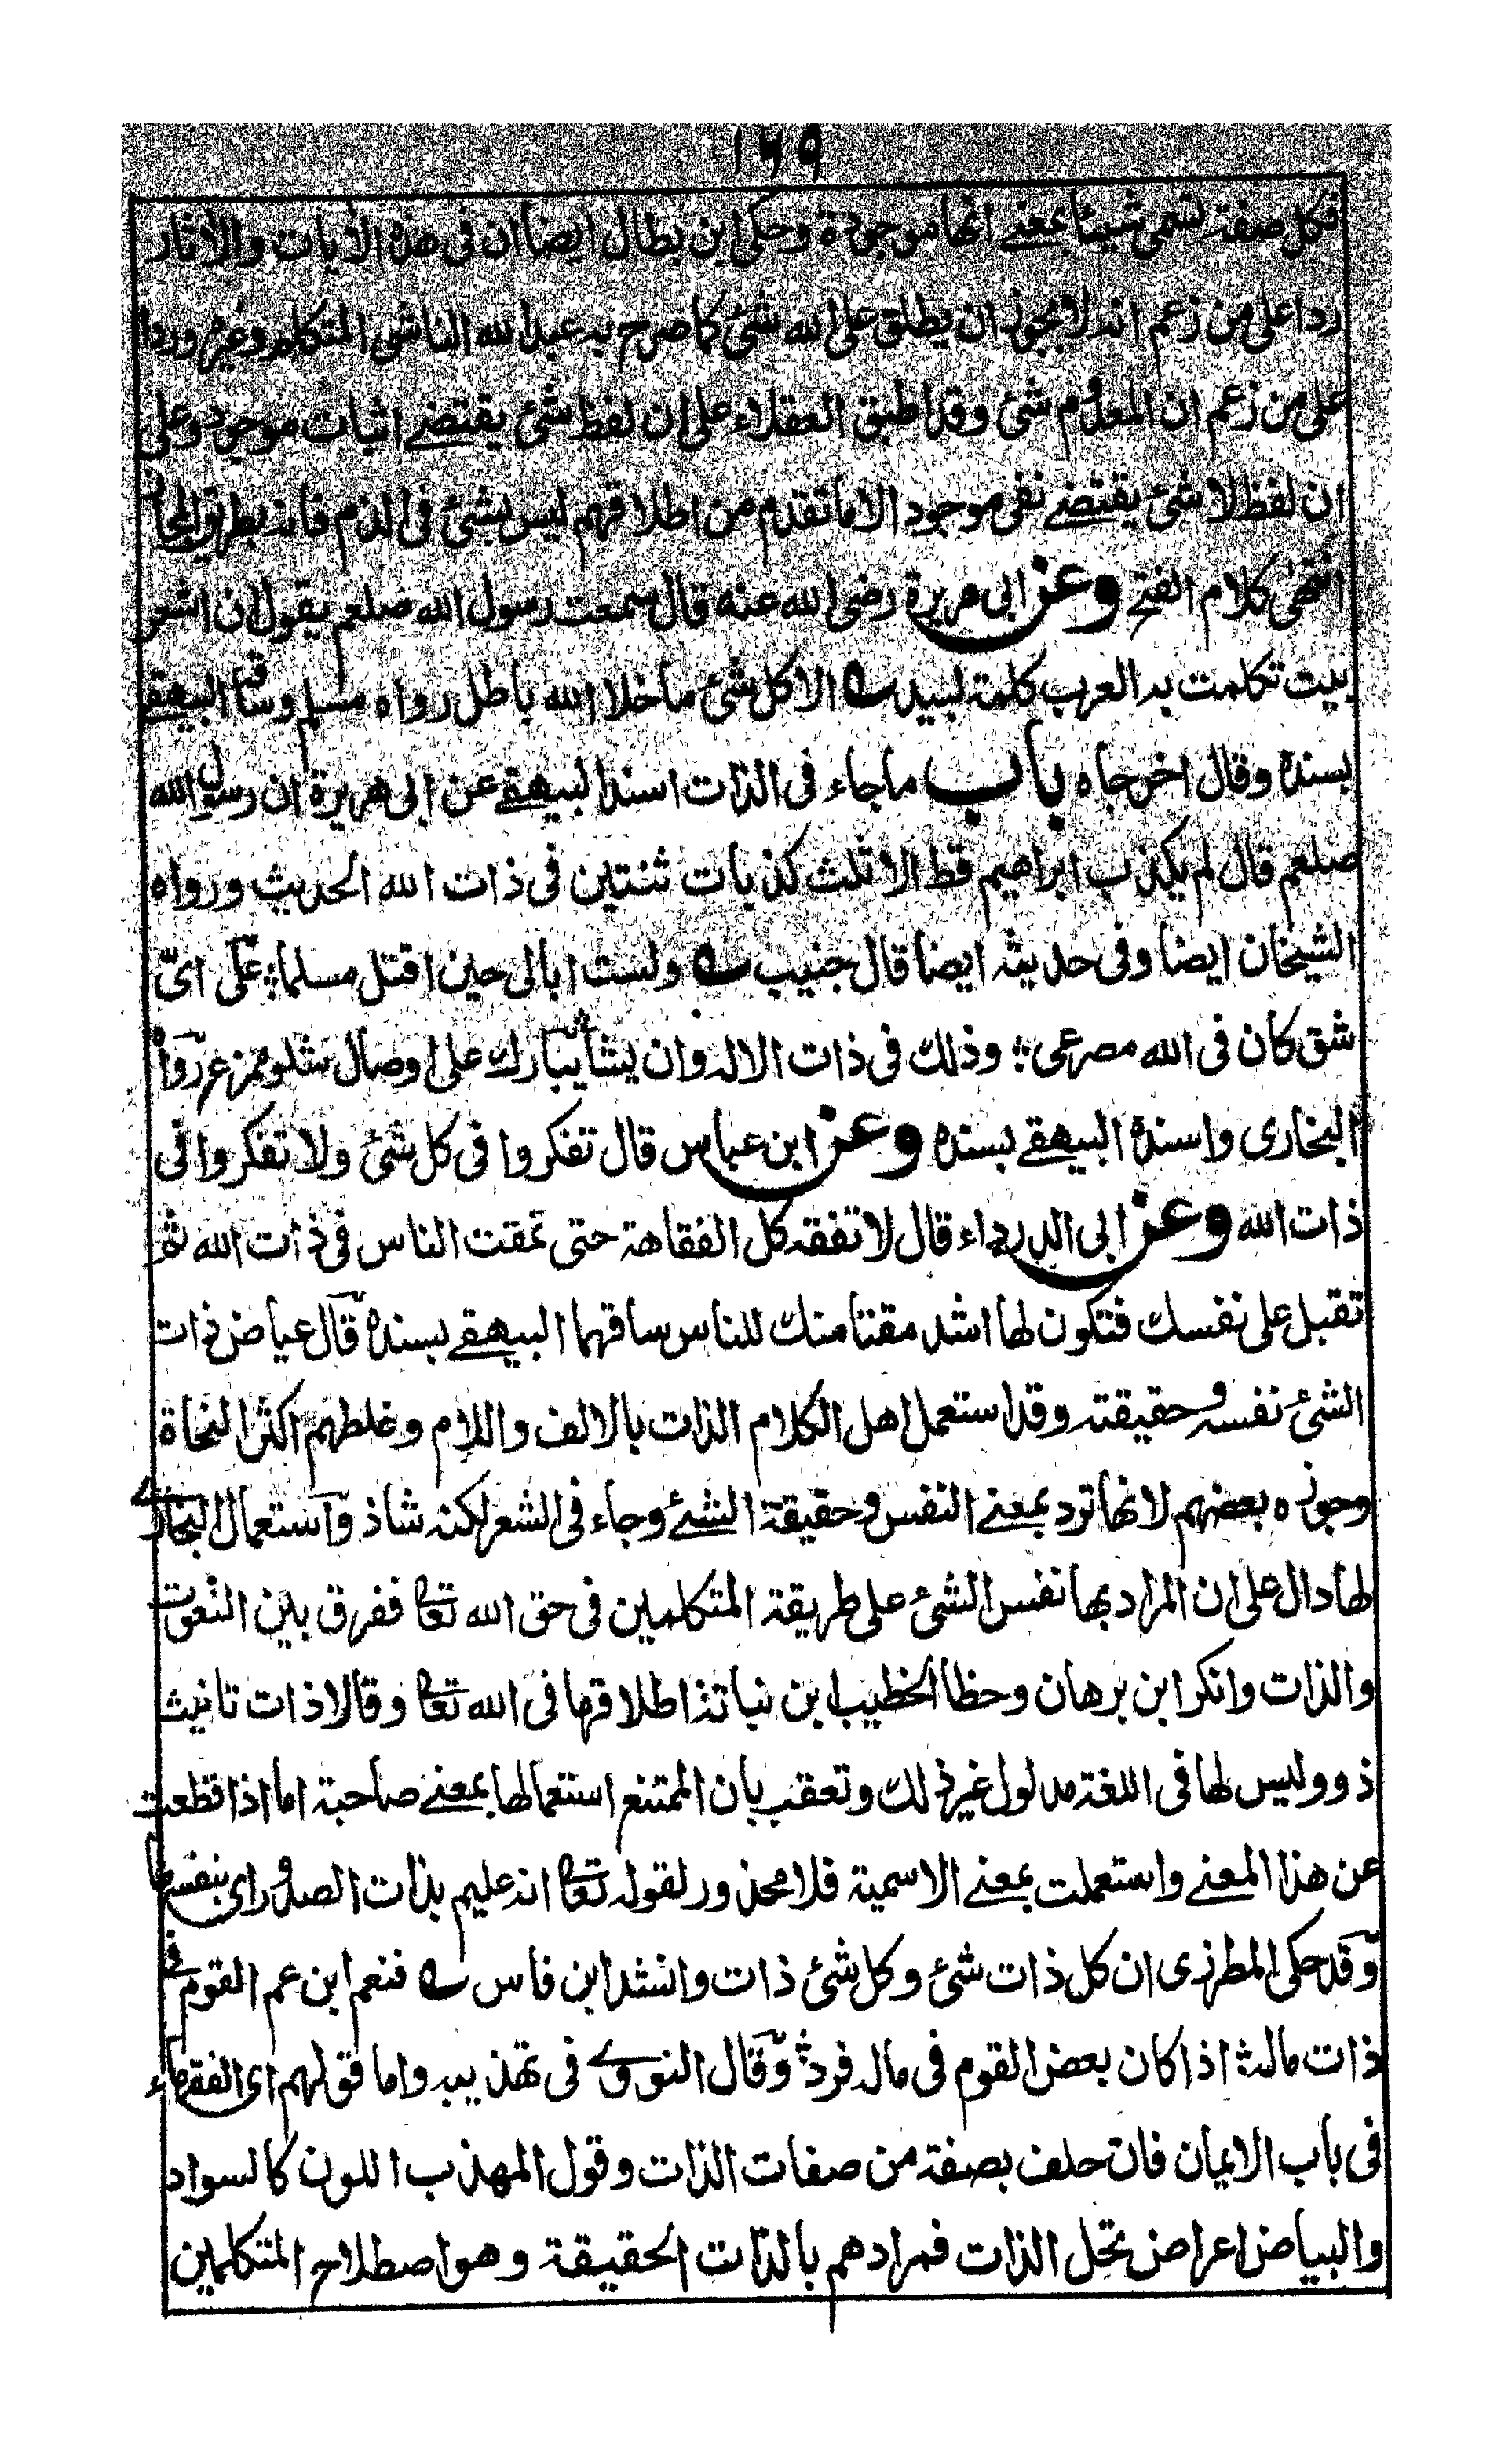 ١٤٩
فكل صفة تسمى شيئا بمعنے انها موجودة وحكى ابن بطال ايضا ان فى هذه الآيات والآثار
ردا على من زعم انه لا يجوز ان يطلق على الله شئ كما صرح به عبد الله الناشى المتكلم وغيره وردا
على من زعم ان المعدوم شئ وقد اطبق العقلاء على ان لفظ شئ يقتضے اثبات موجود وعلى
ان لفظ لا شئ يقتضے نفى موجود الا ما تقدم من اطلاقهم ليس بشئ فى الذم فانه بطريق المجاز
انتهى كلام الفتح وعن ابى هريرة رضى الله عنه قال سمعت رسول الله صلعم يقول ان اشعر
بيت تكلمت به العرب كلمة لبيد ؎ الا كل شئ ما خلا الله باطل رواه مسلم وساقه البيهقے
بسنده وقال اخرجاه باب ما جاء فى الذات اسند البيهقے عن ابى هريرة ان رسول الله
صلعم قال لم يكذب ابراهيم قط الا ثلث كذبات ثنتين فى ذات الله الحديث ورواه
الشيخان ايضا وفى حديثه ايضا قال خبيب ؎ ولست ابالى حين اقتل مسلما؛ على اىّ
شق كان فى الله مصرعى؛ وذلك فى ذات الاله وان يشأ؛ يبارك على اوصال شلو ممزع رواه
البخارى واسنده البيهقے بسنده وعن ابن عباس قال تفكروا فى كل شئ ولا تفكروا فى
ذات الله وعن ابى الدرداء قال لا تفقه كل الفقاهة حتى تمقت الناس فى ذات الله ثم
تقبل على نفسك فتكون لها اشد مقتا منك للناس ساقهما البيهقے بسنده قال عياض ذات
الشئ نفسه وحقيقته وقد استعمل اهل الكلام الذات بالالف واللام وغلطهم اكثر النحاة
وجوزه بعضهم لانها ترد بمعنے النفس وحقيقة الشئے وجاء فى الشعر لكنه شاذ واستعمال البخارے
لها دال على ان المراد بها نفس الشئ على طريقة المتكلمين فى حق الله تعالى ففرق بين النعوت
والذات وانكر ابن برهان وحظا الخطيب ابن نباتة اطلاقها فى الله تعالى وقالا ذات تانيث
ذو وليس لها فى اللغة مدلول غير ذلك وتعقب بان الممتنع استعمالها بمعنے صاحبة اما اذا قطعت
عن هذا المعنے واستعملت بمعنے الاسمية فلا محذور لقوله تعالى انه عليم بذات الصدور اى بنفسها
وقد حكى المطرزى ان كل ذات شئ وكل شئ ذات وانشد ابن فاس ؎ فنعم ابن عم القوم فى
ذات ماله؛ اذا كان بعض القوم فى ماله فرد؛ وقال النووے فى تهذيبه واما قولهم اى الفقهاء
فى باب الايمان فان حلف بصفة من صفات الذات وقول المهذب اللون كالسواد
والبياض اعراض تحل الذات فمرادهم بالذات الحقيقة وهو اصطلاح المتكلمين